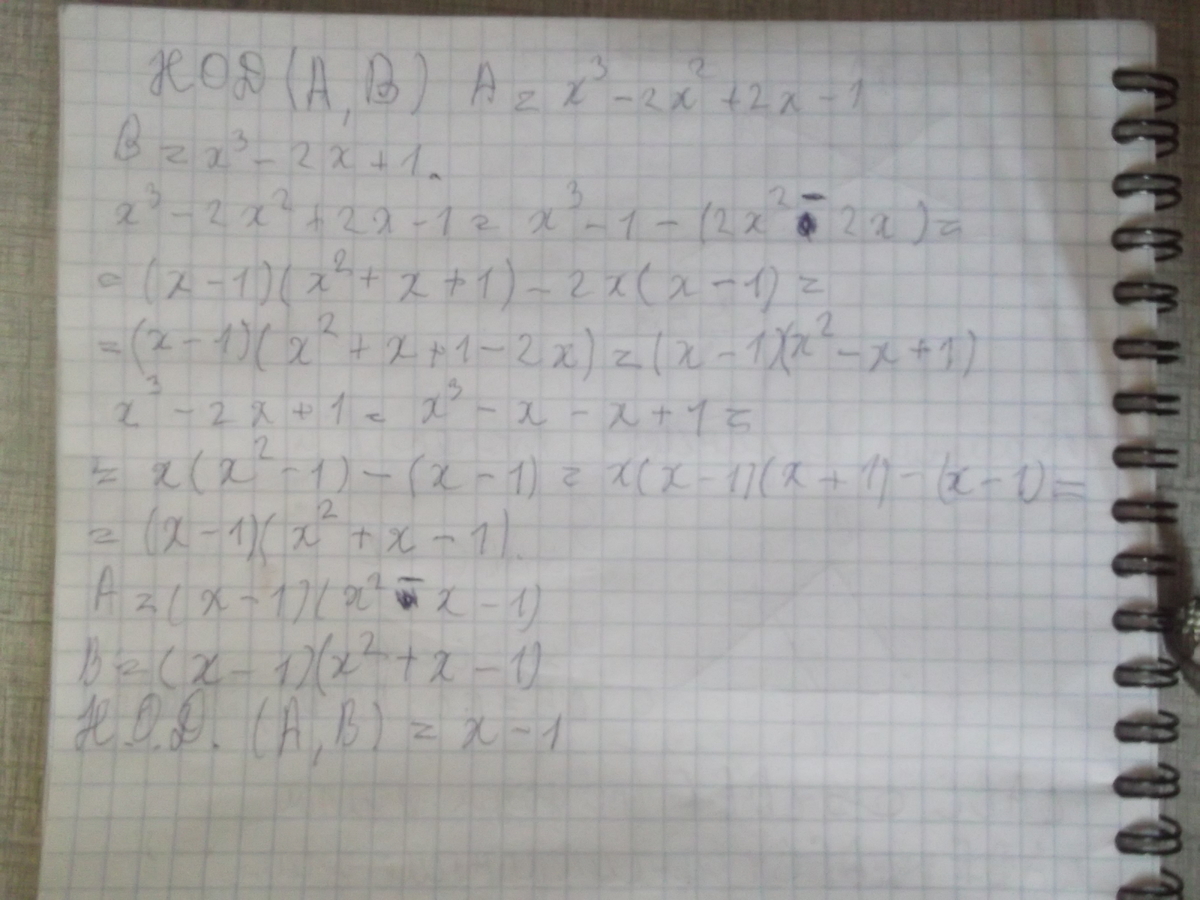 НОД (А, В) А = x³ - 2x² + 2x - 1
В = x³ - 2x + 1.
x³ - 2x² + 2x - 1 = x³ - 1 - (2x² - 2x) =
= (x - 1)(x² + x + 1) - 2x(x - 1) =
= (x - 1)(x² + x + 1 - 2x) = (x - 1)(x² - x + 1)
x³ - 2x + 1 = x³ - x - x + 1 =
= x(x² - 1) - (x - 1) = x(x - 1)(x + 1) - (x - 1) =
= (x - 1)(x² + x - 1).
А = (x - 1)(x² - x - 1)
В = (x - 1)(x² + x - 1)
Н.О.Д. (А, В) = x - 1